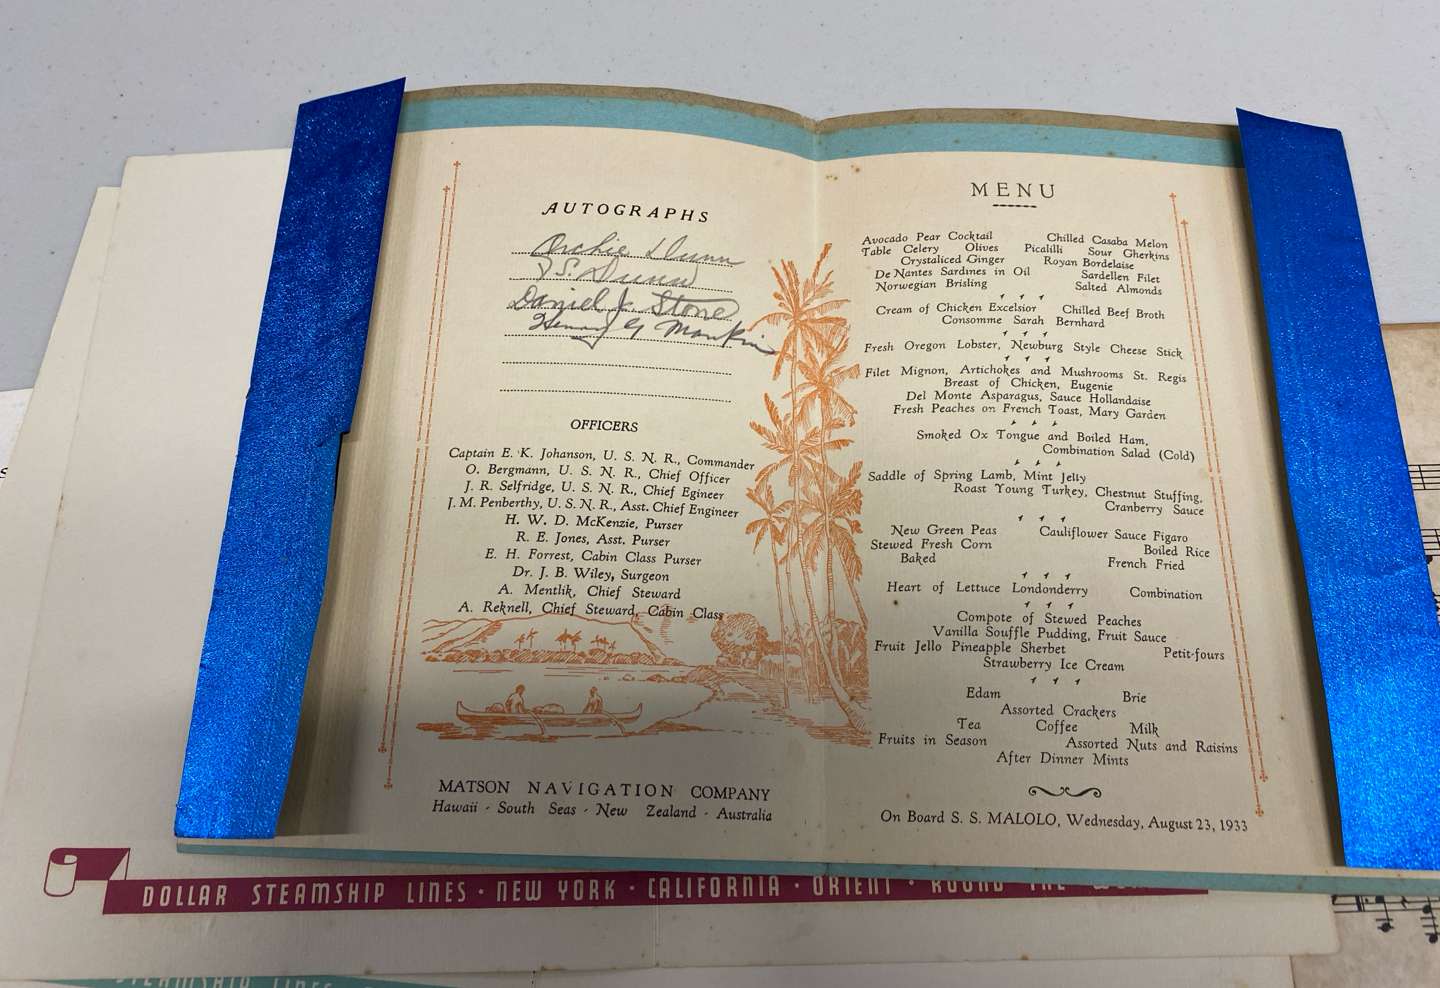 AUTOGRAPHS
Archie Dunn
J S. Dunn
Daniel J. Stone
Henry G Mankin
OFFICERS
Captain E. K. Johanson, U. S. N. R., Commander
O. Bergmann, U. S. N. R., Chief Officer
J. R. Selfridge, U. S. N. R., Chief Egineer
J. M. Penberthy, U. S. N. R., Asst. Chief Engineer
H. W. D. McKenzie, Purser
R. E. Jones, Asst. Purser
E. H. Forrest, Cabin Class Purser
Dr. J. B. Wiley, Surgeon
A. Mentlik, Chief Steward
A. Reknell, Chief Steward, Cabin Class
MATSON NAVIGATION COMPANY
Hawaii - South Seas - New Zealand - Australia
MENU
Avocado Pear Cocktail Chilled Casaba Melon
Table Celery Olives Picalilli Sour Gherkins
Crystaliced Ginger Royan Bordelaise
De Nantes Sardines in Oil Sardellen Filet
Norwegian Brisling Salted Almonds
Cream of Chicken Excelsior Chilled Beef Broth
Consomme Sarah Bernhard
Fresh Oregon Lobster, Newburg Style Cheese Stick
Filet Mignon, Artichokes and Mushrooms St. Regis
Breast of Chicken, Eugenie
Del Monte Asparagus, Sauce Hollandaise
Fresh Peaches on French Toast, Mary Garden
Smoked Ox Tongue and Boiled Ham,
Combination Salad (Cold)
Saddle of Spring Lamb, Mint Jelly
Roast Young Turkey, Chestnut Stuffing,
Cranberry Sauce
New Green Peas Cauliflower Sauce Figaro
Stewed Fresh Corn Boiled Rice
Baked French Fried
Heart of Lettuce Londonderry Combination
Compote of Stewed Peaches
Vanilla Souffle Pudding, Fruit Sauce
Fruit Jello Pineapple Sherbet Petit-fours
Strawberry Ice Cream
Edam Brie
Assorted Crackers
Tea Coffee Milk
Fruits in Season Assorted Nuts and Raisins
After Dinner Mints
On Board S. S. MALOLO, Wednesday, August 23, 1933
DOLLAR STEAMSHIP LINES · NEW YORK · CALIFORNIA · ORIENT · ROUND THE
STEAMSHIP LINES